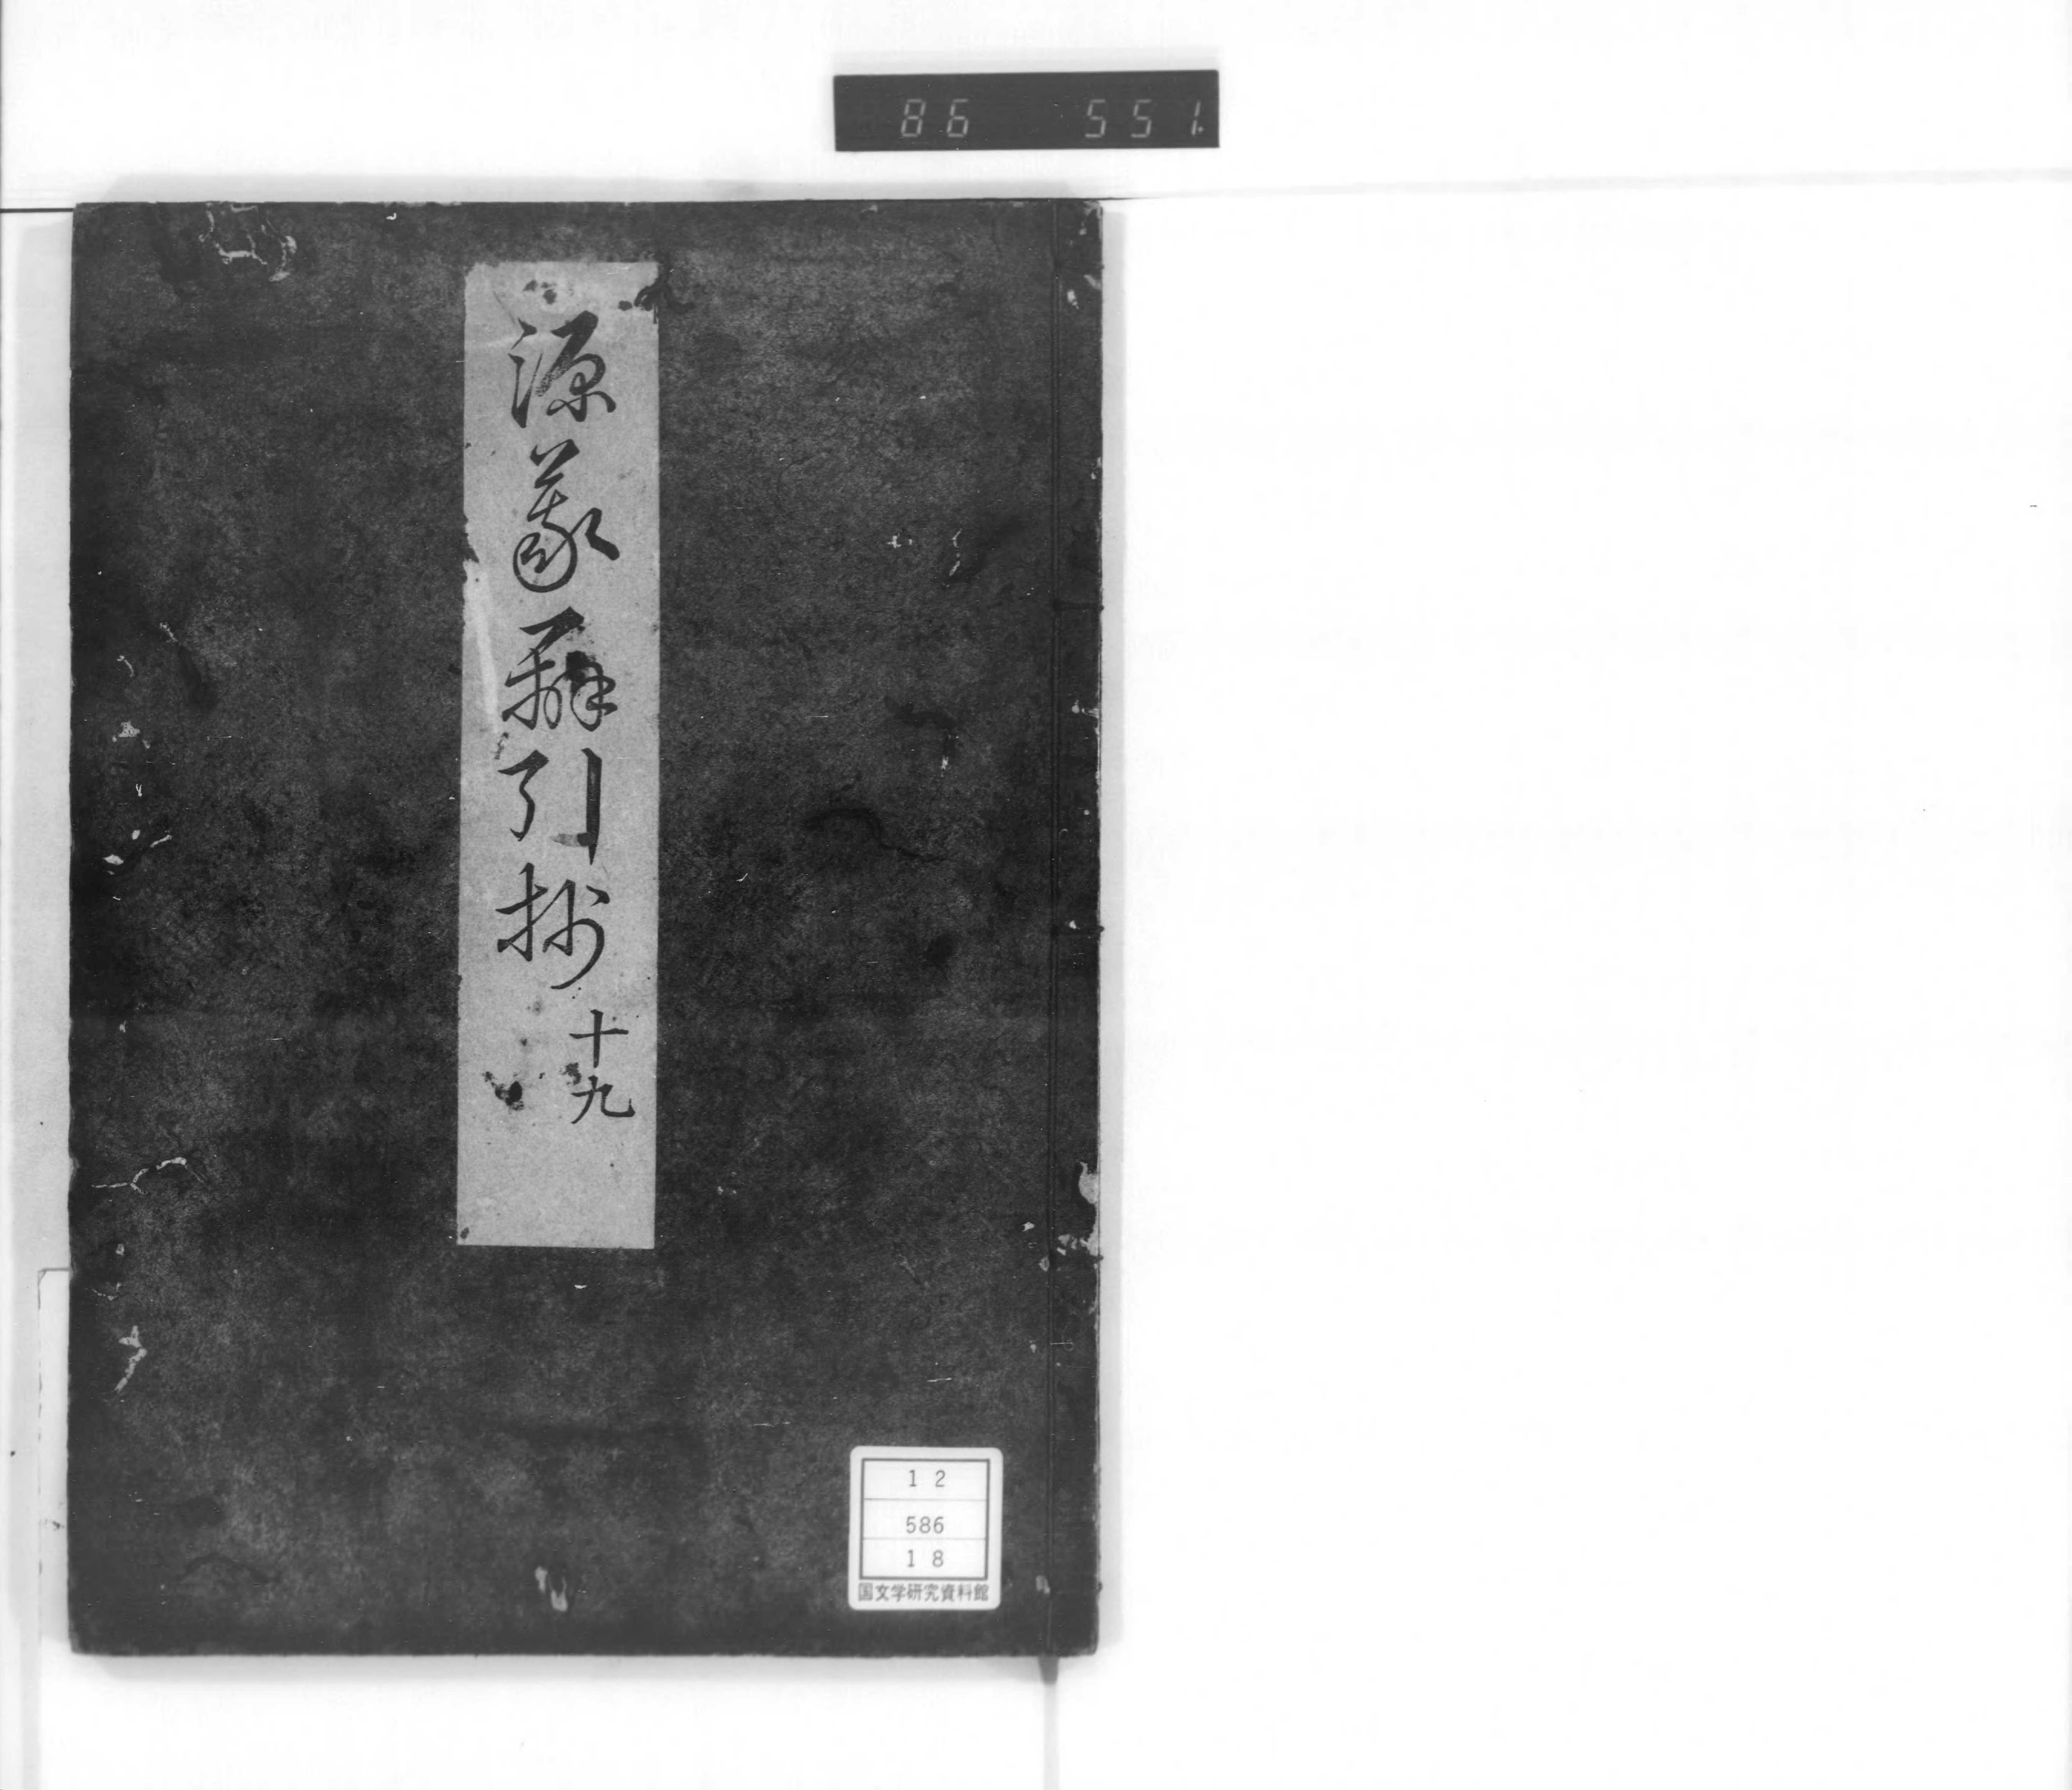 86 551.
源義弁引抄
十九
12
586
18
国文学研究資料館